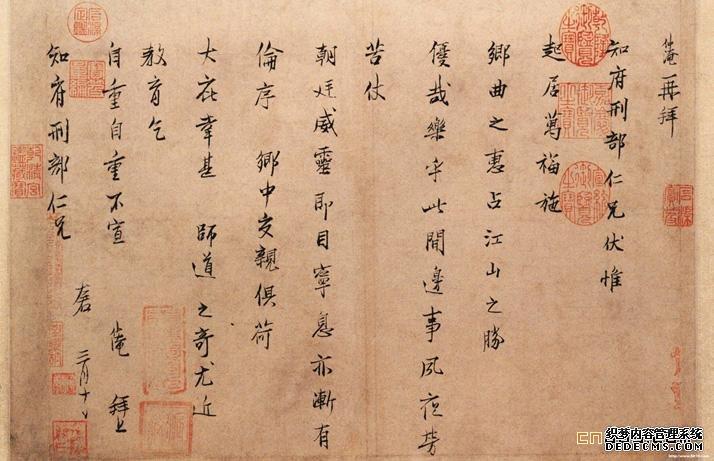 仲淹再拜
知府刑部仁兄伏惟
起居萬福施
鄉曲之惠占江山之勝
優哉樂乎此間邊事夙夜勞
苦仗
朝廷威靈即目寧息亦漸有
倫序鄉中交親俱荷
大庇幸甚師道之奇尤近
教育乞
自重自重不宣 淹拜上
知府刑部仁兄 三月十日
织梦内容管理系统